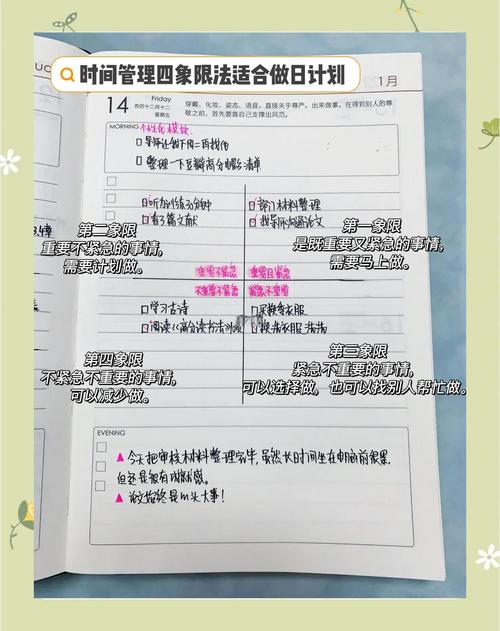 时间管理四象限法适合做日计划
1月
14 Friday
农历十二月十二
星期五
穿戴、化妆、姿态、语音，直接关乎尊严。出来做事，在得到别人的尊
敬之前，首先要靠自己支撑出风范。
MORNING 个性化模块
整理一下豆瓣高分电影清单
听力训练30分钟
部门材料整理
看3篇文献
找导师沟通论文
第二象限
重要不紧急的事情，
需要计划做。
第一象限
是既重要又紧急的事情，
需要马上做。
重要不紧急 重要且紧急
不重要不紧急 紧急不重要
学习古诗
第四象限
不紧急不重要的事情，
可以减少做。
第三象限
紧急不重要的事情，
可以选择做，也可以找别人帮忙做。
EVENING
▲ 今天把审核材料整理完毕，虽然长时间坐在电脑前很累，
但还是很有成就感。
▲ 论文始终是心头大事！